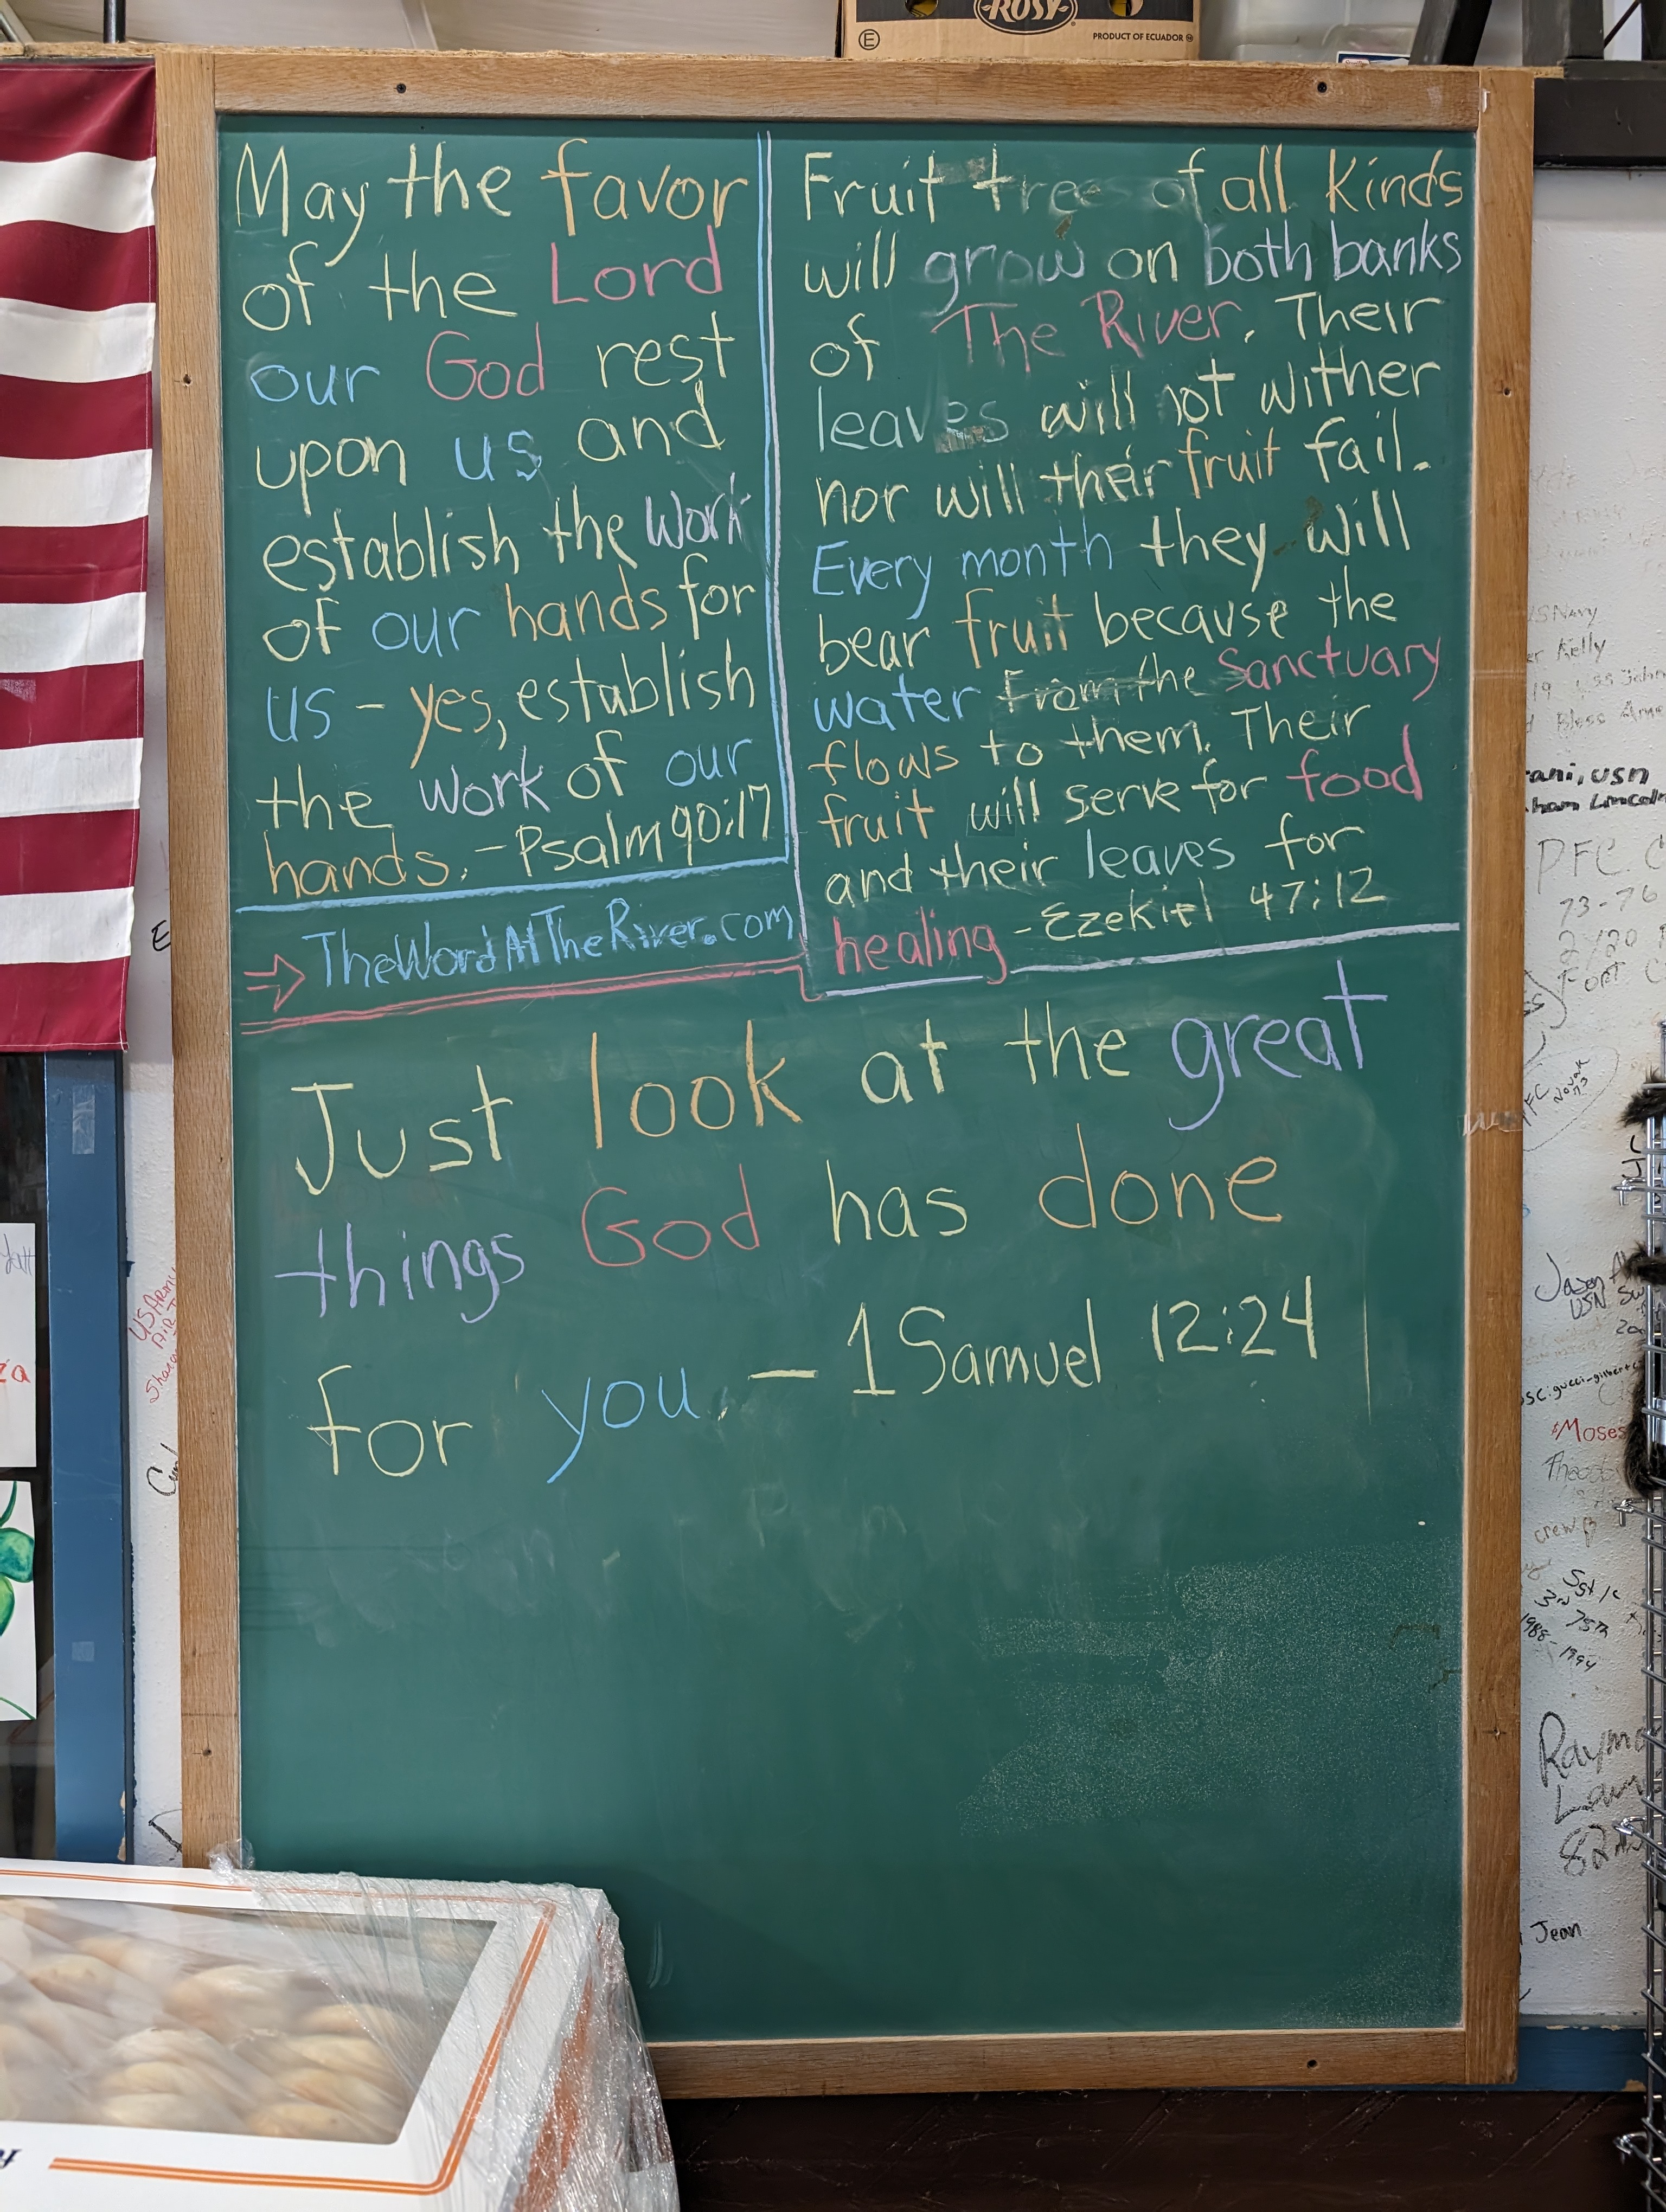 ROSY
PRODUCT OF ECUADOR
May the favor
of the Lord
our God rest
upon us and
establish the work
of our hands for
us - yes, establish
the work of our
hands. - Psalm 90:17
TheWordAtTheRiver.com
Fruit trees of all Kinds
will grow on both banks
of The River. Their
leaves will not wither
nor will their fruit fail.
Every month they will
bear fruit because the
water from the Sanctuary
flows to them. Their
fruit will serve for food
and their leaves for
healing - Ezekiel 47:12
Just look at the great
things God has done
for you. - 1 Samuel 12:24
Kelly
Bless
usn
PFC
73-76
PFC
Novak
73
Jason
USN
Moses
crew B
75th
1988-1994
Jean
US Army